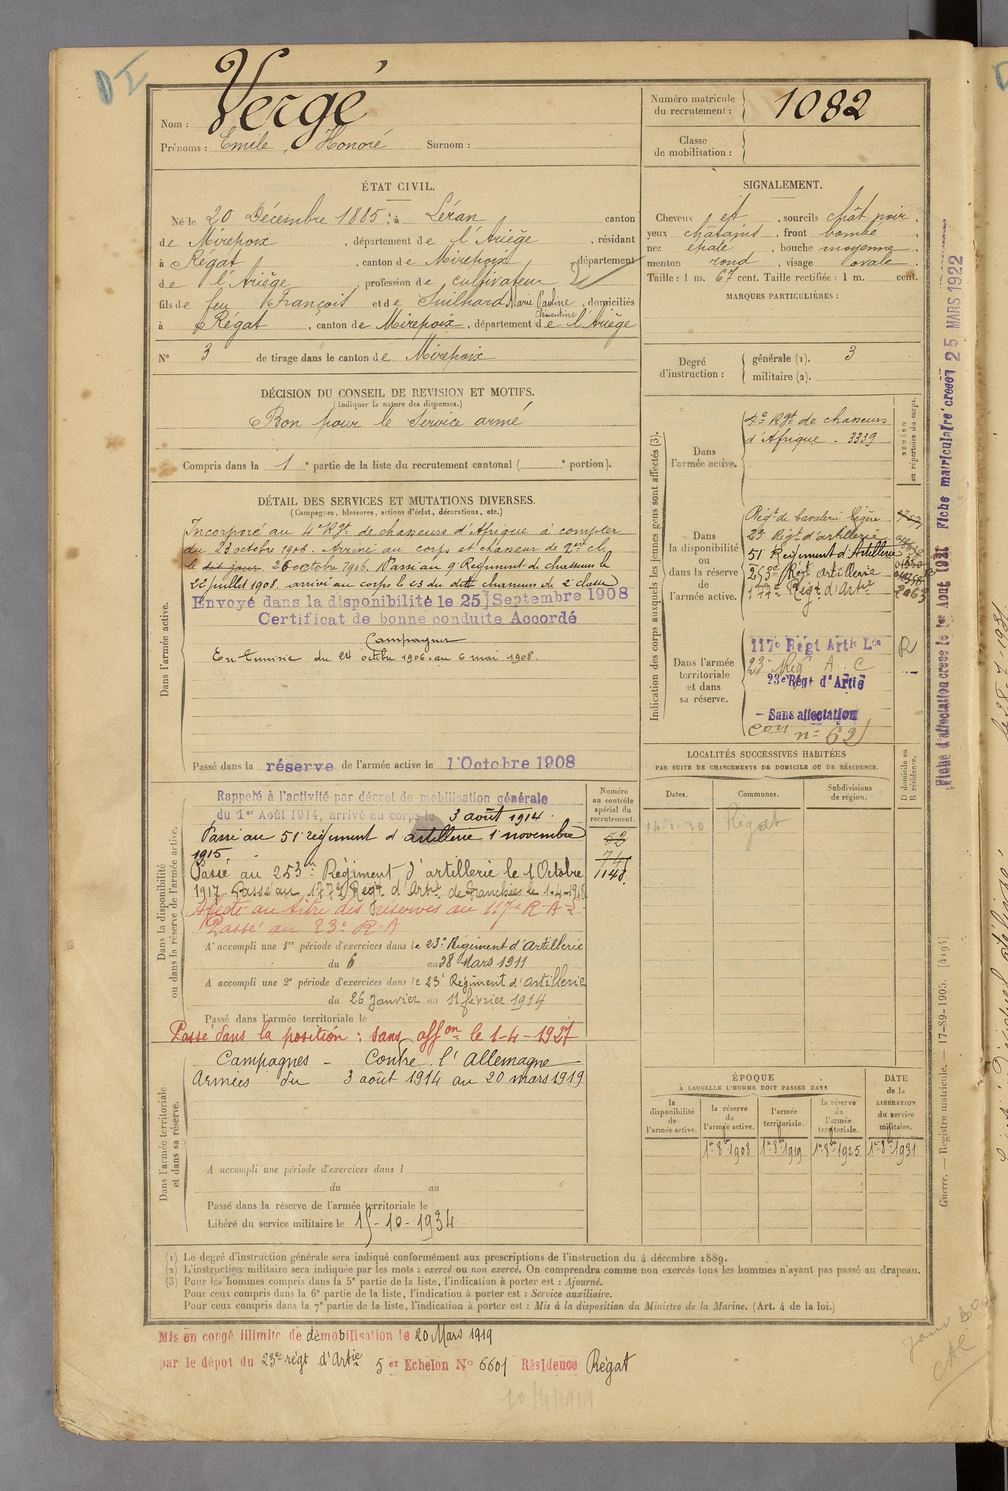 DI
Nom : Vergé
Prénoms : Emile, Honoré Surnom :
Numéro matricule du recrutement : 1082
Classe de mobilisation :
ÉTAT CIVIL.
Né le 20 Décembre 1885, à Léran canton
de Mirepoix, département de l'Ariège, résidant
à Régat, canton de Mirepoix, département
de l'Ariège, profession de cultivateur
fils de feu François et de Suilhard Marie Pauline Clémentine, domiciliés
à Régat, canton de Mirepoix, département de l'Ariège
N° 3 de tirage dans le canton de Mirepoix
DÉCISION DU CONSEIL DE REVISION ET MOTIFS.
(Indiquer la nature des dispenses.)
Bon pour le Service armé
Compris dans la 1e partie de la liste du recrutement cantonal ( e portion).
DÉTAIL DES SERVICES ET MUTATIONS DIVERSES.
(Campagnes, blessures, actions d'éclat, décorations, etc.)
Dans l'armée active.
Incorporé au 4e Rgt. de chasseurs d'Afrique à compter
du 23 octobre 1906. Arrivé au corps et chasseur de 2e cl.
le dit jour 26 octobre 1906. Passé au 9 Régiment de chasseurs le
22 juillet 1908. arrivé au corps le 23 du dit chasseur de 2e classe
Envoyé dans la disponibilité le 25 Septembre 1908
Certificat de bonne conduite Accordé
Campagnes
En Tunisie du 24 octobre 1906 au 6 mai 1908.
Passé dans la réserve de l'armée active le 1er Octobre 1908
Dans la disponibilité ou dans la réserve de l'armée active.
Rappelé à l'activité par décret de mobilisation générale
du 1er Août 1914, arrivé au corps le 3 août 1914.
Passé au 51e régiment d'artillerie 1 novembre
1915.
Passé au 253me Régiment d'artillerie le 1 Octobre
1917. Passé au 177e Régt d'Artie de tranchées le 1-4-1918
Affecté au titre des Réserves au 117e R.A.L.
Passé au 23e R.A
A accompli une 1re période d'exercices dans le 23e Régiment d'Artillerie
du 6 au 28 Mars 1911
A accompli une 2e période d'exercices dans le 23e Régiment d'artillerie
du 26 Janvier au 11 février 1914
Passé dans l'armée territoriale le
Passé dans la position : sans affon le 1-4-1927
Dans l'armée territoriale et dans sa réserve.
Campagnes - Contre l'Allemagne
Armées du 3 août 1914 au 20 mars 1919
A accompli une période d'exercices dans l
du au
Passé dans la réserve de l'armée territoriale le
Libéré du service militaire le 15-10-1934
Numéro au contrôle spécial du recrutement.
53
74
1148
SIGNALEMENT.
Cheveux et, sourcils chât noir,
yeux châtains, front bombé,
nez épaté, bouche moyenne,
menton rond, visage ovale.
Taille : 1 m. 67 cent. Taille rectifiée : 1 m. cent.
MARQUES PARTICULIÈRES :
Degré d'instruction : générale (1). 3
militaire (2).
Indication des corps auxquels les jeunes gens sont affectés (3).
NUMÉRO au répertoire du corps.
Dans l'armée active.
4e Rgt de chasseurs
d'Afrique. 3339
Dans la disponibilité ou dans la réserve de l'armée active.
Régt de cavalerie légère
23 Régt d'artillerie
51 Régiment d'Artillerie
253e Régt artillerie
177e Régt d'Artie 2063
Dans l'armée territoriale et dans sa réserve.
117e Régt Artie Lde R
23e Rég A.C
23e Régt d'Artie
- Sans affectation
con n° 62
LOCALITÉS SUCCESSIVES HABITÉES
PAR SUITE DE CHANGEMENTS DE DOMICILE OU DE RÉSIDENCE.
Dates. Communes. Subdivisions de région. D domicile ou R résidence.
Régat
ÉPOQUE
À LAQUELLE L'HOMME DOIT PASSER DANS
DATE de la LIBÉRATION du service militaire.
la disponibilité de l'armée active. la réserve de l'armée active. l'armée territoriale. la réserve de l'armée territoriale.
1er 8bre 1908 1er 8bre 1919 1er 8bre 1925 1er 8bre 1931
(1) Le degré d'instruction générale sera indiqué conformément aux prescriptions de l'instruction du 4 décembre 1889.
(2) L'instruction militaire sera indiquée par les mots : exercé ou non exercé. On comprendra comme non exercés tous les hommes n'ayant pas passé au drapeau.
(3) Pour les hommes compris dans la 5e partie de la liste, l'indication à porter est : Ajourné.
Pour ceux compris dans la 6e partie de la liste, l'indication à porter est : Service auxiliaire.
Pour ceux compris dans la 7e partie de la liste, l'indication à porter est : Mis à la disposition du Ministre de la Marine. (Art. 4 de la loi.)
Mis en congé illimité de démobilisation le 20 Mars 1919
par le dépôt du 23e régt d'Artie 5 er Echelon N° 6601 Résidence Régat
10/4/1919
Fiche d'affectation créée le 1er Août 1921 Fiche matriculaire créée 25 MARS 1922
Guerre. — Registre matricule. — 17-89-1905. [4194]